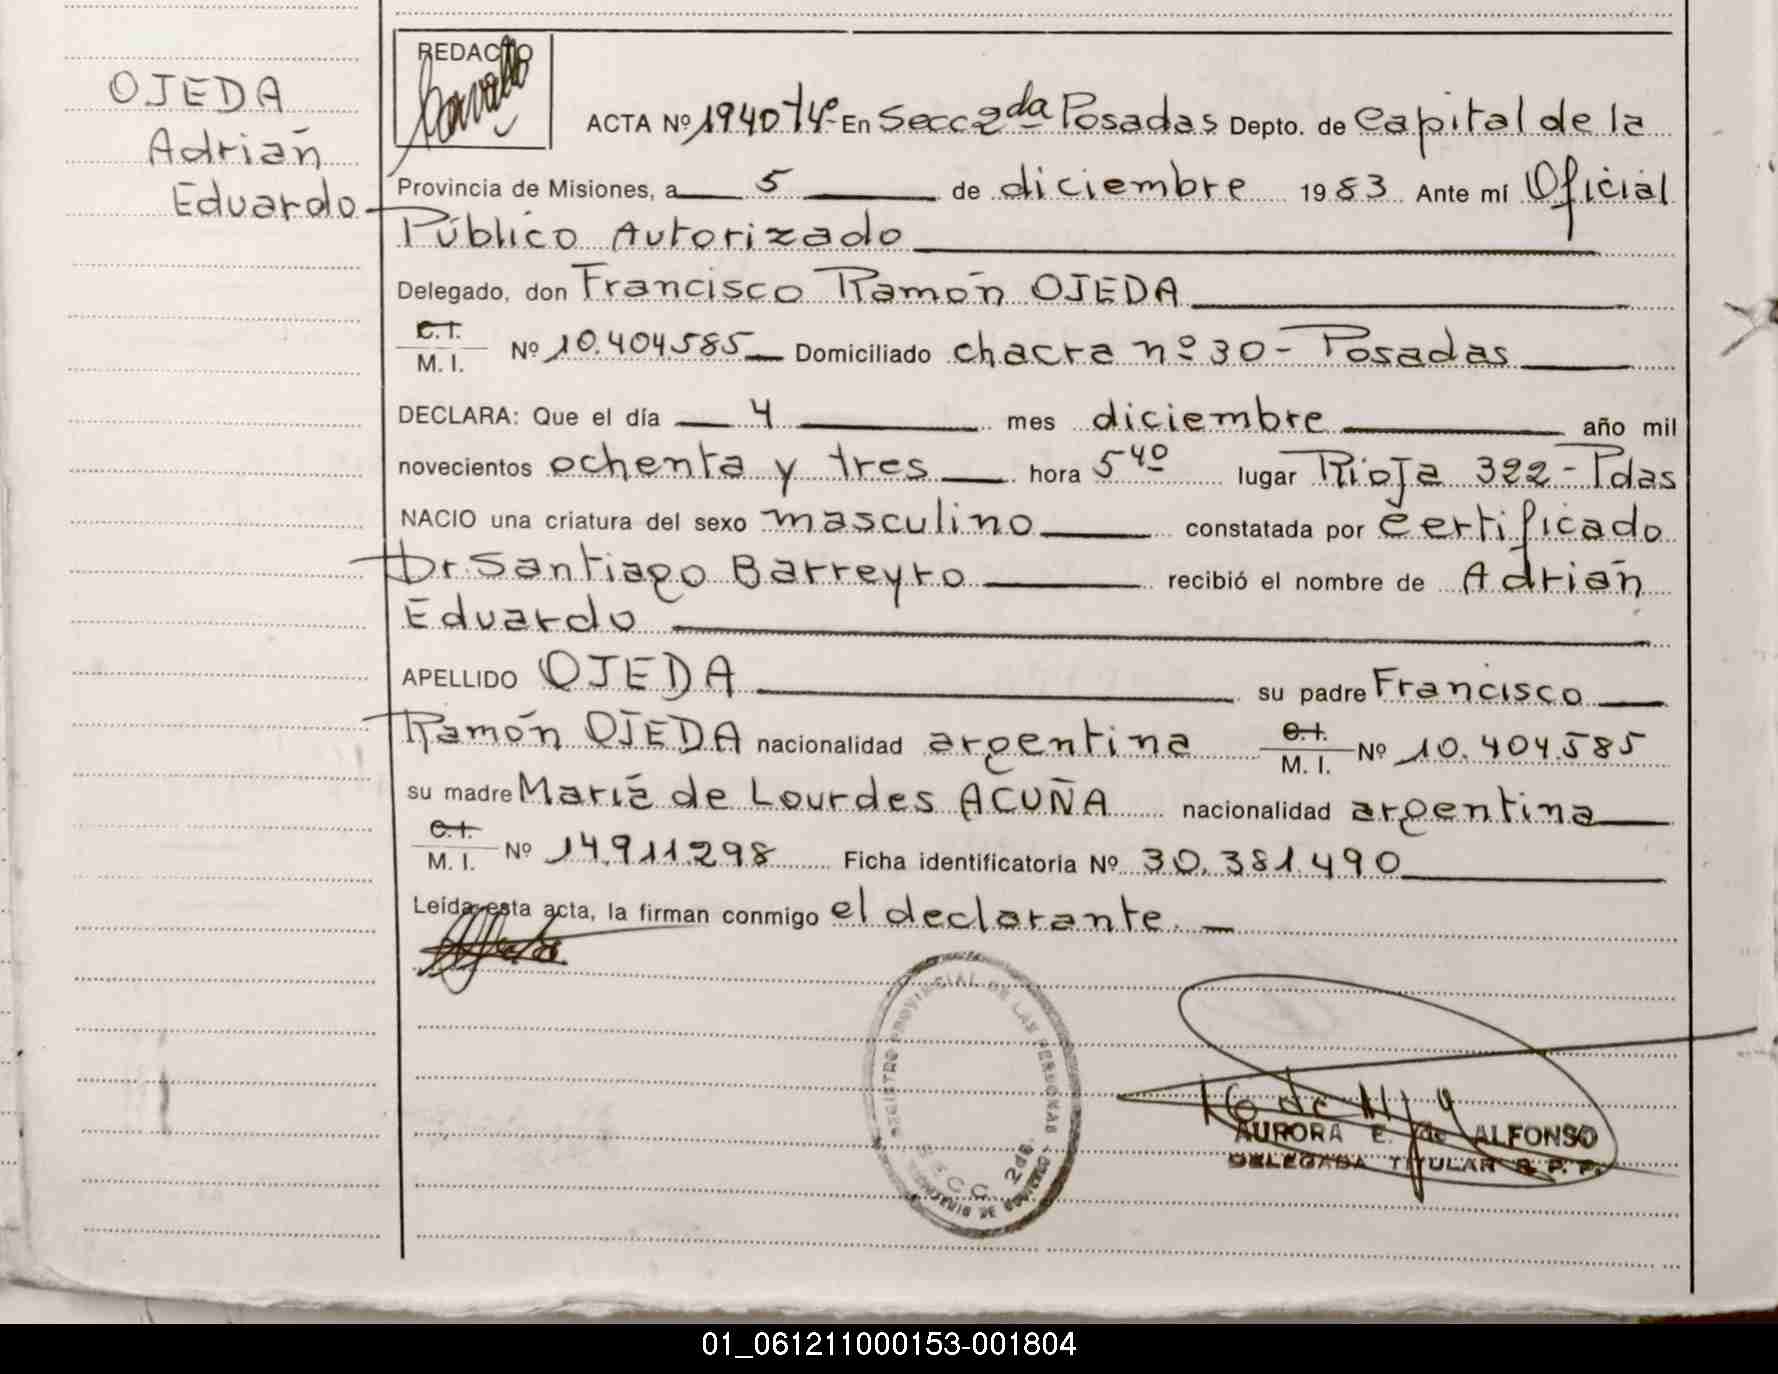 OJEDA
Adrián
Eduardo
REDACTO
ACTA Nº 1940 Tº 4º- En Secc 2da Posadas Depto. de Capital de la
Provincia de Misiones, a 5 de diciembre 1983. Ante mí Oficial
Público Autorizado
Delegado, don Francisco Ramón OJEDA
C.I.
M. I. Nº 10.404585 Domiciliado chacra nº 30 - Posadas
DECLARA: Que el día 4 mes diciembre año mil
novecientos ochenta y tres hora 5 40 lugar Rioja 322 - Pdas
NACIO una criatura del sexo masculino constatada por certificado
Dr. Santiago Barreyro recibió el nombre de Adrián
Eduardo
APELLIDO OJEDA su padre Francisco
Ramón OJEDA nacionalidad argentina C.I. M. I. Nº 10.404.585
su madre María de Lourdes ACUÑA nacionalidad argentina
C.I.
M. I. Nº 14.911.298 Ficha identificatoria Nº 30.381.490
Leída esta acta, la firman conmigo el declarante.
REGISTRO PROVINCIAL DE LAS PERSONAS
SECC. 2da.
MINISTERIO DE GOBIERNO
AURORA E. de ALFONSO
DELEGADA TITULAR R. P. P.
01_061211000153-001804